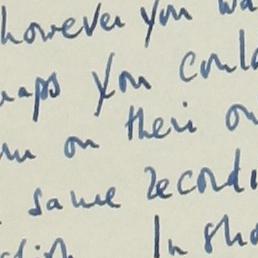 however you wa
haps you coul
on their o
same recordi
In sho